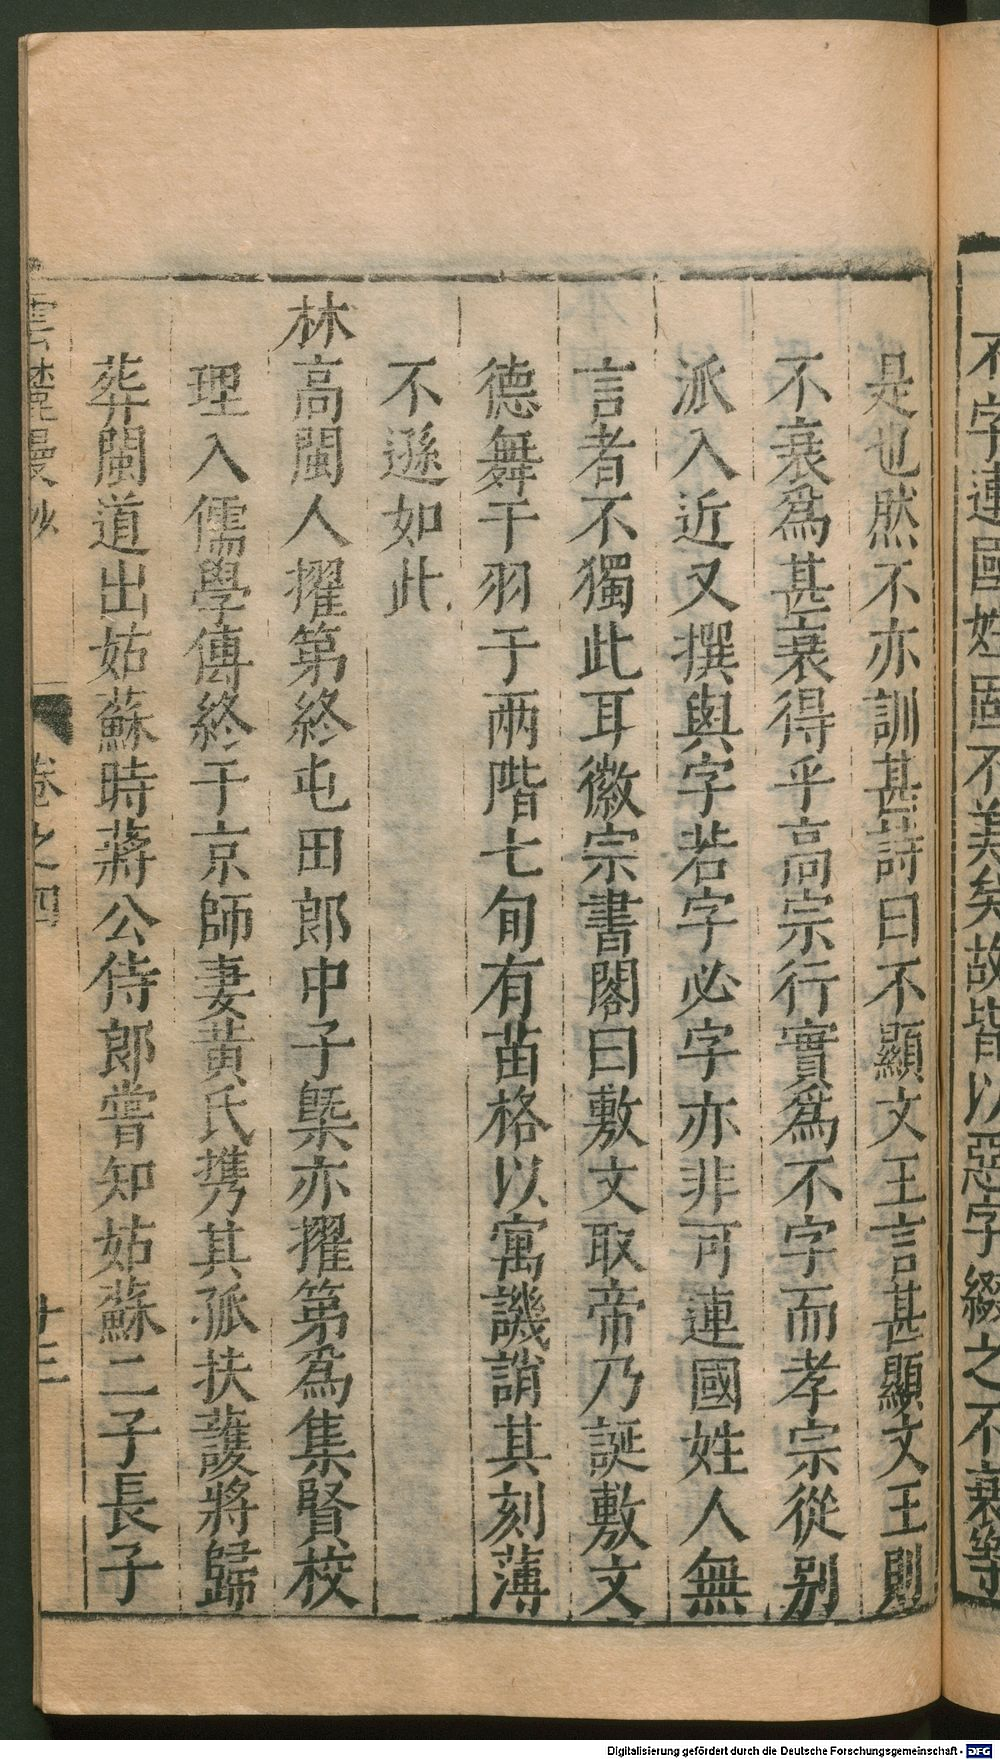 不字連國姓固不美矣故皆以惡字綴之不衰樂
是也然不亦訓甚詩曰不顯文王言甚顯文王則
不衰爲甚衰得乎高宗行實爲不字而孝宗從别
派入近又撰與字若字必字亦非可連國姓人無
言者不獨此耳徽宗書閣曰敷文取帝乃誕敷文
德舞干羽于兩階七旬有苗格以寓譏誚其刻薄
不遜如此
林高閩人擢第終屯田郎中子槩亦擢第爲集賢校
理入儒學傳終于京師妻黃氏携其孤扶護將歸
葬閩道出姑蘇時蔣公侍郎嘗知姑蘇二子長子
雲麓漫抄 卷之四 廿三
Digitalisierung gefördert durch die Deutsche Forschungsgemeinschaft - DFG